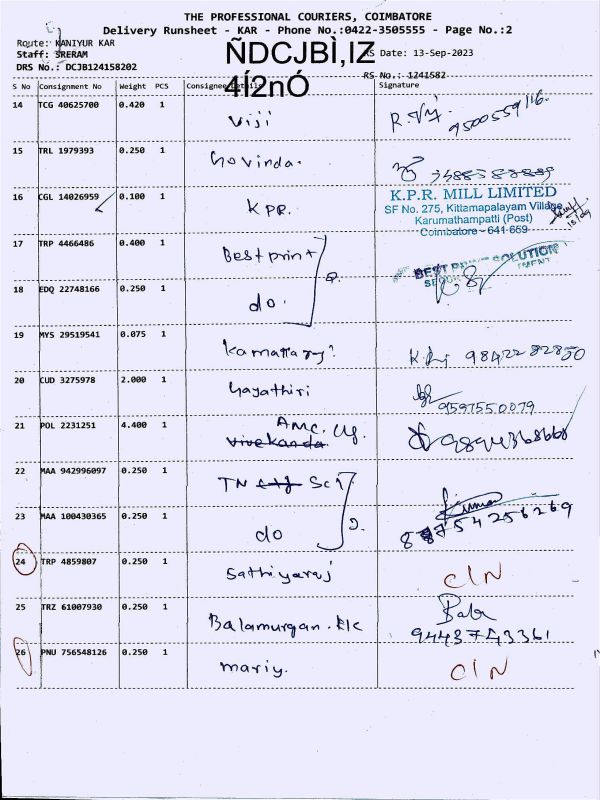 THE PROFESSIONAL COURIERS, COIMBATORE
Delivery Runsheet - KAR - Phone No.:0422-3505555 - Page No.:2
Route: KANIYUR KAR
Staff: SRERAM
ÑDCJBÌ,IZ
RS Date: 13-Sep-2023
DRS No.: DCJB124158202
4Í2nÓ
RS No.: 1241582
S No Consignment No Weight PCS Consignee Details Signature
14 TCG 40625700 0.420 1 Viji R. Viji 9500559116.
15 TRL 1979393 0.250 1 Govinda.
16 CGL 14026959 0.100 1 KPR.
K.P.R. MILL LIMITED
SF No. 275, Kittampalayam Village
Karumathampatti (Post)
Coimbatore - 641 659
15/09
17 TRP 4466486 0.400 1 Best print
BEST PRINT SOLUTION
18 EDQ 22748166 0.250 1 do.
19 MYS 29519541 0.075 1 98422 82850
20 CUD 3275978 2.000 1 Gayathiri 9597550079
21 POL 2231251 4.400 1 AMC.
Vivekanda
22 MAA 942996097 0.250 1 TN
23 MAA 100430365 0.250 1 do 2. 8754256269
24 TRP 4859807 0.250 1 Sathiyaraj C/N
25 TRZ 61007930 0.250 1 Balamurgan. Bala
9443743361
26 PNU 756548126 0.250 1 mariy. C/N